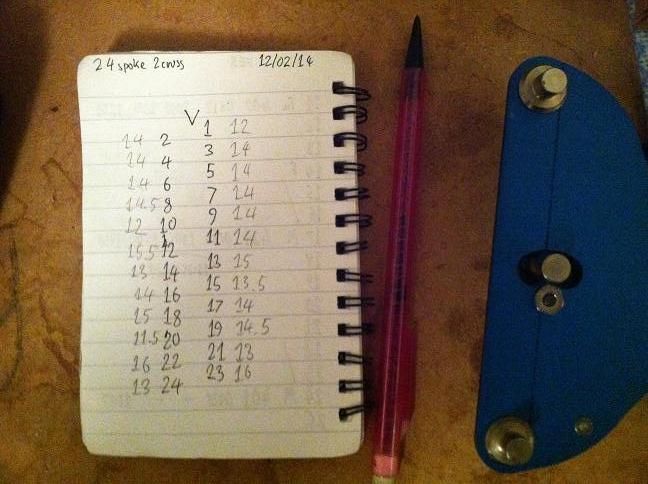 24 spoke 2cross 12/02/14
V
14 2 1 12
14 4 3 14
14 6 5 14
14.5 8 7 14
12 10 9 14
15.5 12 11 14
13 14 13 15
14 16 15 13.5
15 18 17 14
11.5 20 19 14.5
16 22 21 13
13 24 23 16